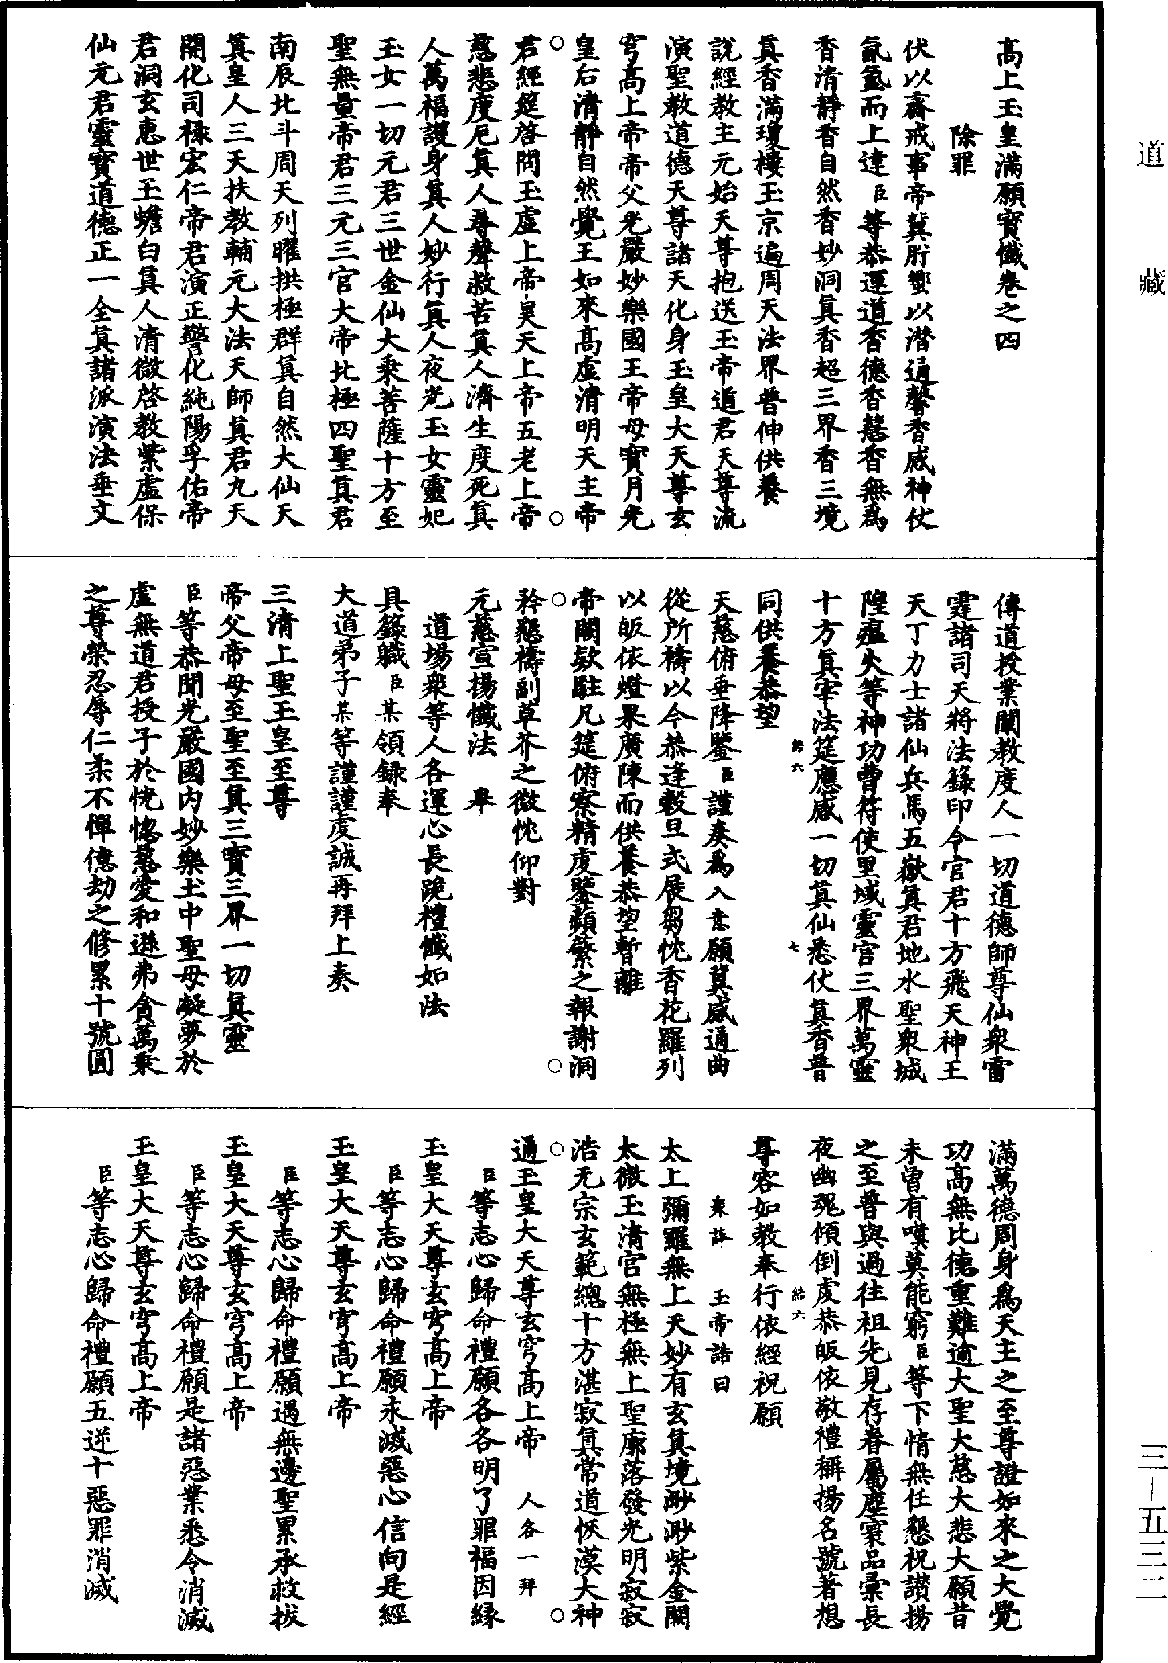 道藏
三—五三二
高上玉皇滿願寶懺卷之四
除罪
伏以齋戒事帝冀肸蠁以潛通馨香感神仗
氤氳而上達臣等恭運道香德香慧香無為
香清靜香自然香妙洞真香超三界香三境
真香滿瓊樓玉京遍周天法界普伸供養
說經教主元始天尊抱送玉帝道君天尊流
演聖教道德天尊諸天化身玉皇大天尊玄
穹高上帝帝父光嚴妙樂國王帝母寶月光
皇后清靜自然覺王如來高虛清明天主帝
君經筵啓問玉虛上帝昊天上帝五老上帝
慈悲度厄真人尋聲救苦真人濟生度死真
人萬福護身真人妙行真人夜光玉女靈妃
玉女一切元君三世金仙大乘菩薩十方至
聖無量帝君三元三官大帝北極四聖真君
南辰北斗周天列曜拱極群真自然大仙天
真皇人三天扶教輔元大法天師真君九天
開化司祿宏仁帝君演正警化純陽孚佑帝
君洞玄惠世玉蟾白真人清微啓教紫虛保
仙元君靈寶道德正一全真諸派演法垂文
傳道授業闡教度人一切道德師尊仙衆雷
霆諸司天將法籙印令官君十方飛天神王
天丁力士諸仙兵馬五嶽真君地水聖衆城
隍瘟火等神功曹符使里域靈官三界萬靈
十方真宰法筵應感一切真仙悉仗真香普
同供養恭望
天慈俯垂降鑒臣謹奏為入意願冀感通曲
從所禱以今恭逢穀旦式展芻忱香花羅列
以皈依燈果廣陳而供養恭望暫離
帝闕欻駐凡筵俯察精虔鑒蘋蘩之報謝洞
矜懇禱副草芥之微忱仰對
元慈宣揚懺法 舉
道場衆等人各運心長跪禮懺如法
具籙職臣某領錄奉
大道弟子某等謹謹虔誠再拜上奏
三清上聖玉皇至尊
帝父帝母至聖至真三寶三界一切真靈
臣等恭聞光嚴國內妙樂土中聖母凝夢於
虛無道君授子於恍惚慈愛和遜弗貪萬乘
之尊榮忍辱仁柔不憚億劫之修累十號圓
滿萬德周身為天主之至尊證如來之大覺
功高無比德重難逾大聖大慈大悲大願昔
未曾有嘆莫能窮臣等下情無任懇祝讚揚
之至普與過往祖先見存眷屬塵寰品彙長
夜幽魂傾倒虔恭皈依敬禮稱揚名號著想
尊容如教奉行依經祝願
衆詠 玉帝誥曰
太上彌羅無上天妙有玄真境渺渺紫金闕
太微玉清宮無極無上聖廓落發光明寂寂
浩无宗玄範總十方湛寂真常道恢漠大神
通玉皇大天尊玄穹高上帝 人各一拜
臣等志心歸命禮願各各明了罪福因緣
玉皇大天尊玄穹高上帝
臣等志心歸命禮願永滅惡心信向是經
玉皇大天尊玄穹高上帝
臣等志心歸命禮願遇無邊聖累承救拔
玉皇大天尊玄穹高上帝
臣等志心歸命禮願是諸惡業悉令消滅
玉皇大天尊玄穹高上帝
臣等志心歸命禮願五逆十惡罪消滅